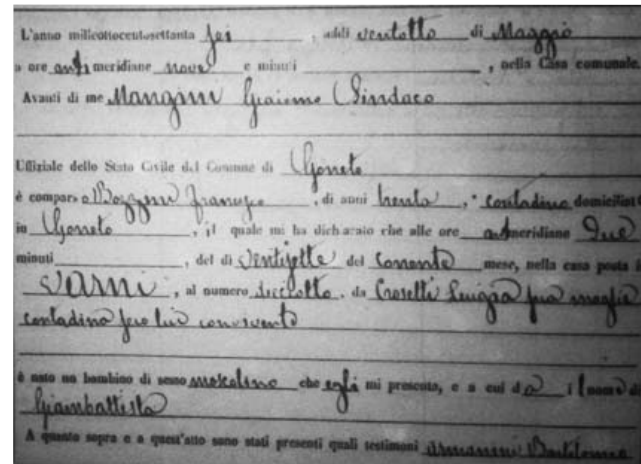 L'anno milleottocentosettanta sei, addì ventotto di Maggio
a ore anti meridiane nove e minuti, nella Casa comunale.
Avanti di me Mangini Giacomo Sindaco
Uffiziale dello Stato Civile del Comune di Gorreto
è comparso Bozzini Francesco, di anni trenta, contadino domiciliato
in Gorreto, il quale mi ha dichiarato che alle ore antimeridiane due
minuti, del dì ventisette del corrente mese, nella casa posta i
Varni, al numero diciotto, da Croselli Luigia sua moglie
contadina seco lui convivente
è nato un bambino di sesso mascolino che egli mi presenta, e a cui dà i l nome di
Giambattista
A quanto sopra e a quest'atto sono stati presenti quali testimoni